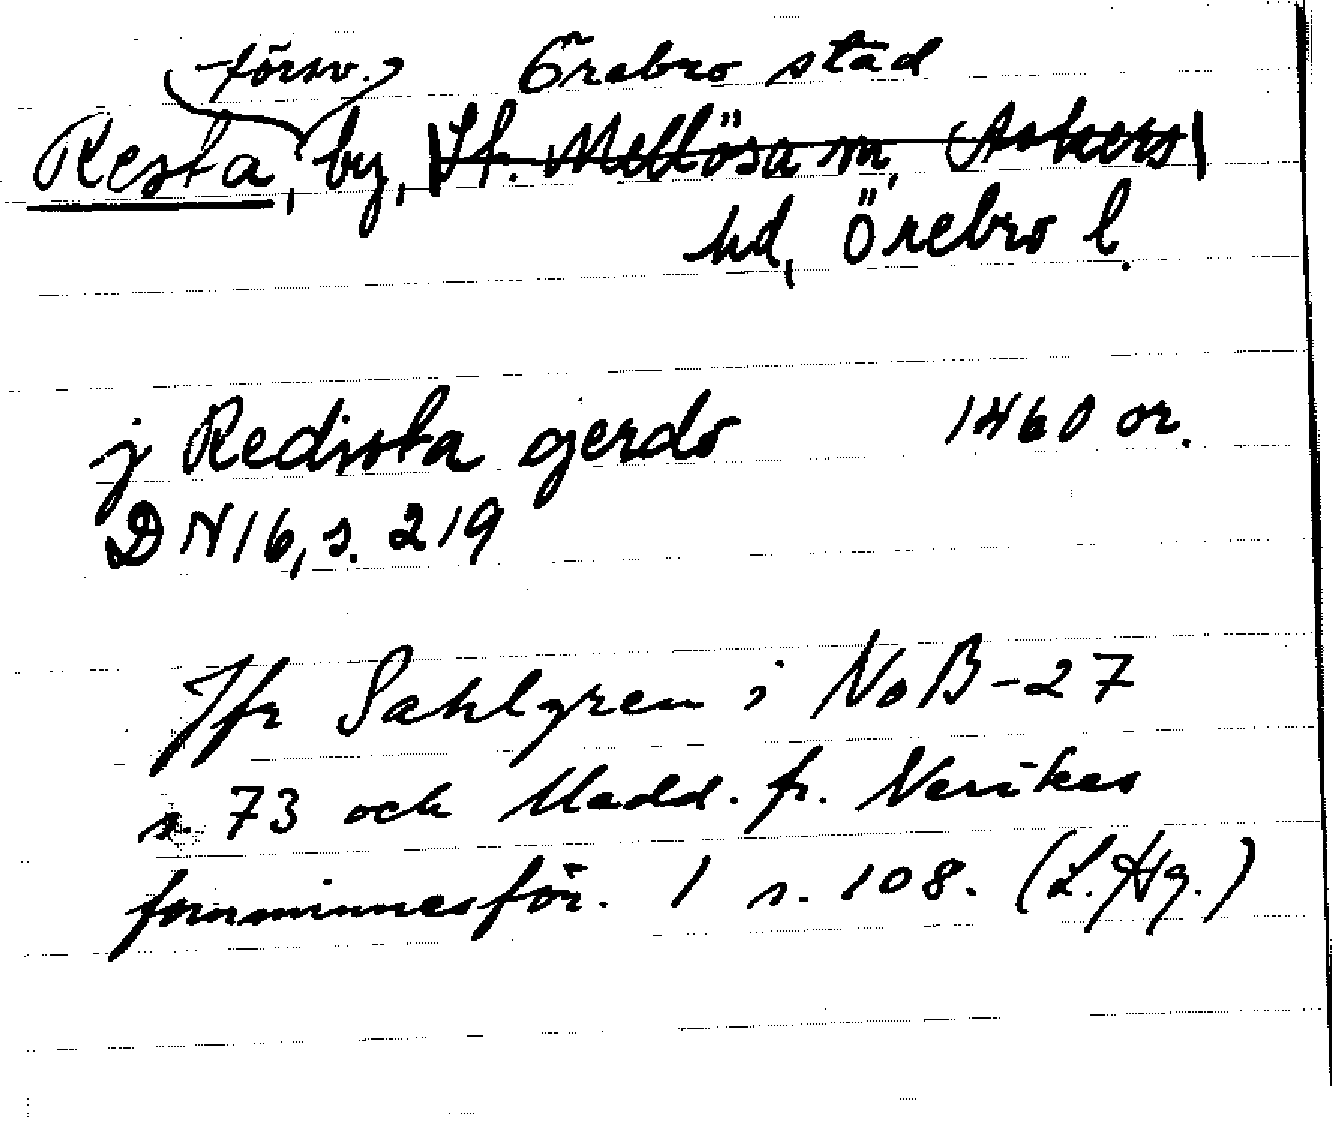 försv. Örebro stad
Resta, by, St. Mellösa sn, Askers
hd, Örebro l.
j Redista gerds 1460 or.
DN 16, s. 219
Jfr Sahlgren i NoB-27
s. 73 och Medd. fr. Nerikes
fornminnesför. 1 s. 108. (L. Hg.)